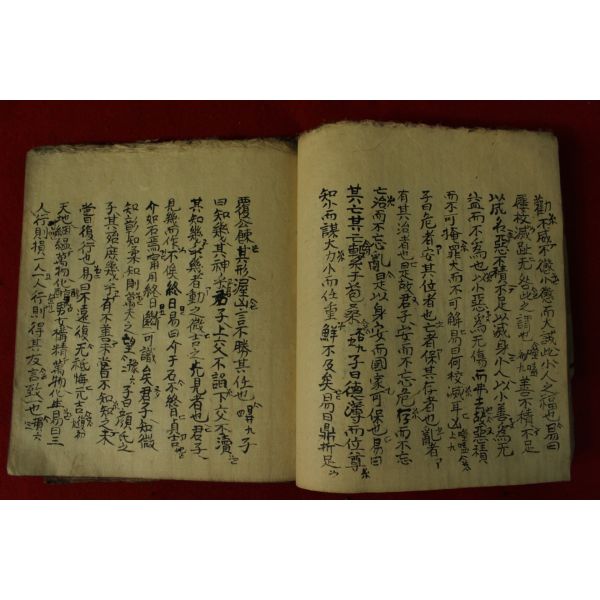 勸不威不懲小懲而大誡此小人之福也易曰
屨校滅趾无咎此之謂也 善不積不足
以成名惡不積不足以滅身小人以小善爲无
益而不爲也以小惡爲无傷而弗去也故惡積
而不可掩罪大而不可解易曰何校滅耳凶
子曰危者安其位者也亡者保其存者也亂者
有其治者也是故君子安而不忘危存而不忘
亡治而不忘亂是以身安而國家可保也易曰
其亡其亡繫于苞桑 子曰德薄而位尊
知小而謀大力小而任重鮮不及矣易曰鼎折足
覆公餗其形渥凶言不勝其任也 子
曰知幾其神乎君子上交不諂下交不瀆
其知幾乎幾者動之微吉之先見者也君子
見幾而作不俟終日易曰介于石不終日貞吉
介如石焉寧用終日斷可識矣君子知微
知彰知柔知剛萬夫之望 子曰顔氏之
子其殆庶幾乎有不善未嘗不知知之未
嘗復行也易曰不遠復无祗悔元吉
天地絪縕萬物化醇男女構精萬物化生易曰三
人行則損一人一人行則得其友言致一也